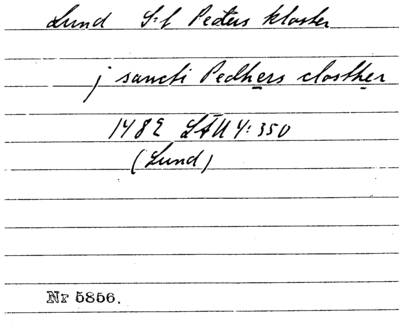 Lund S:t Peders kloster
j sancti Pedhers closther
1482 LÄU 4:350
(Lund)
Nr 5856.